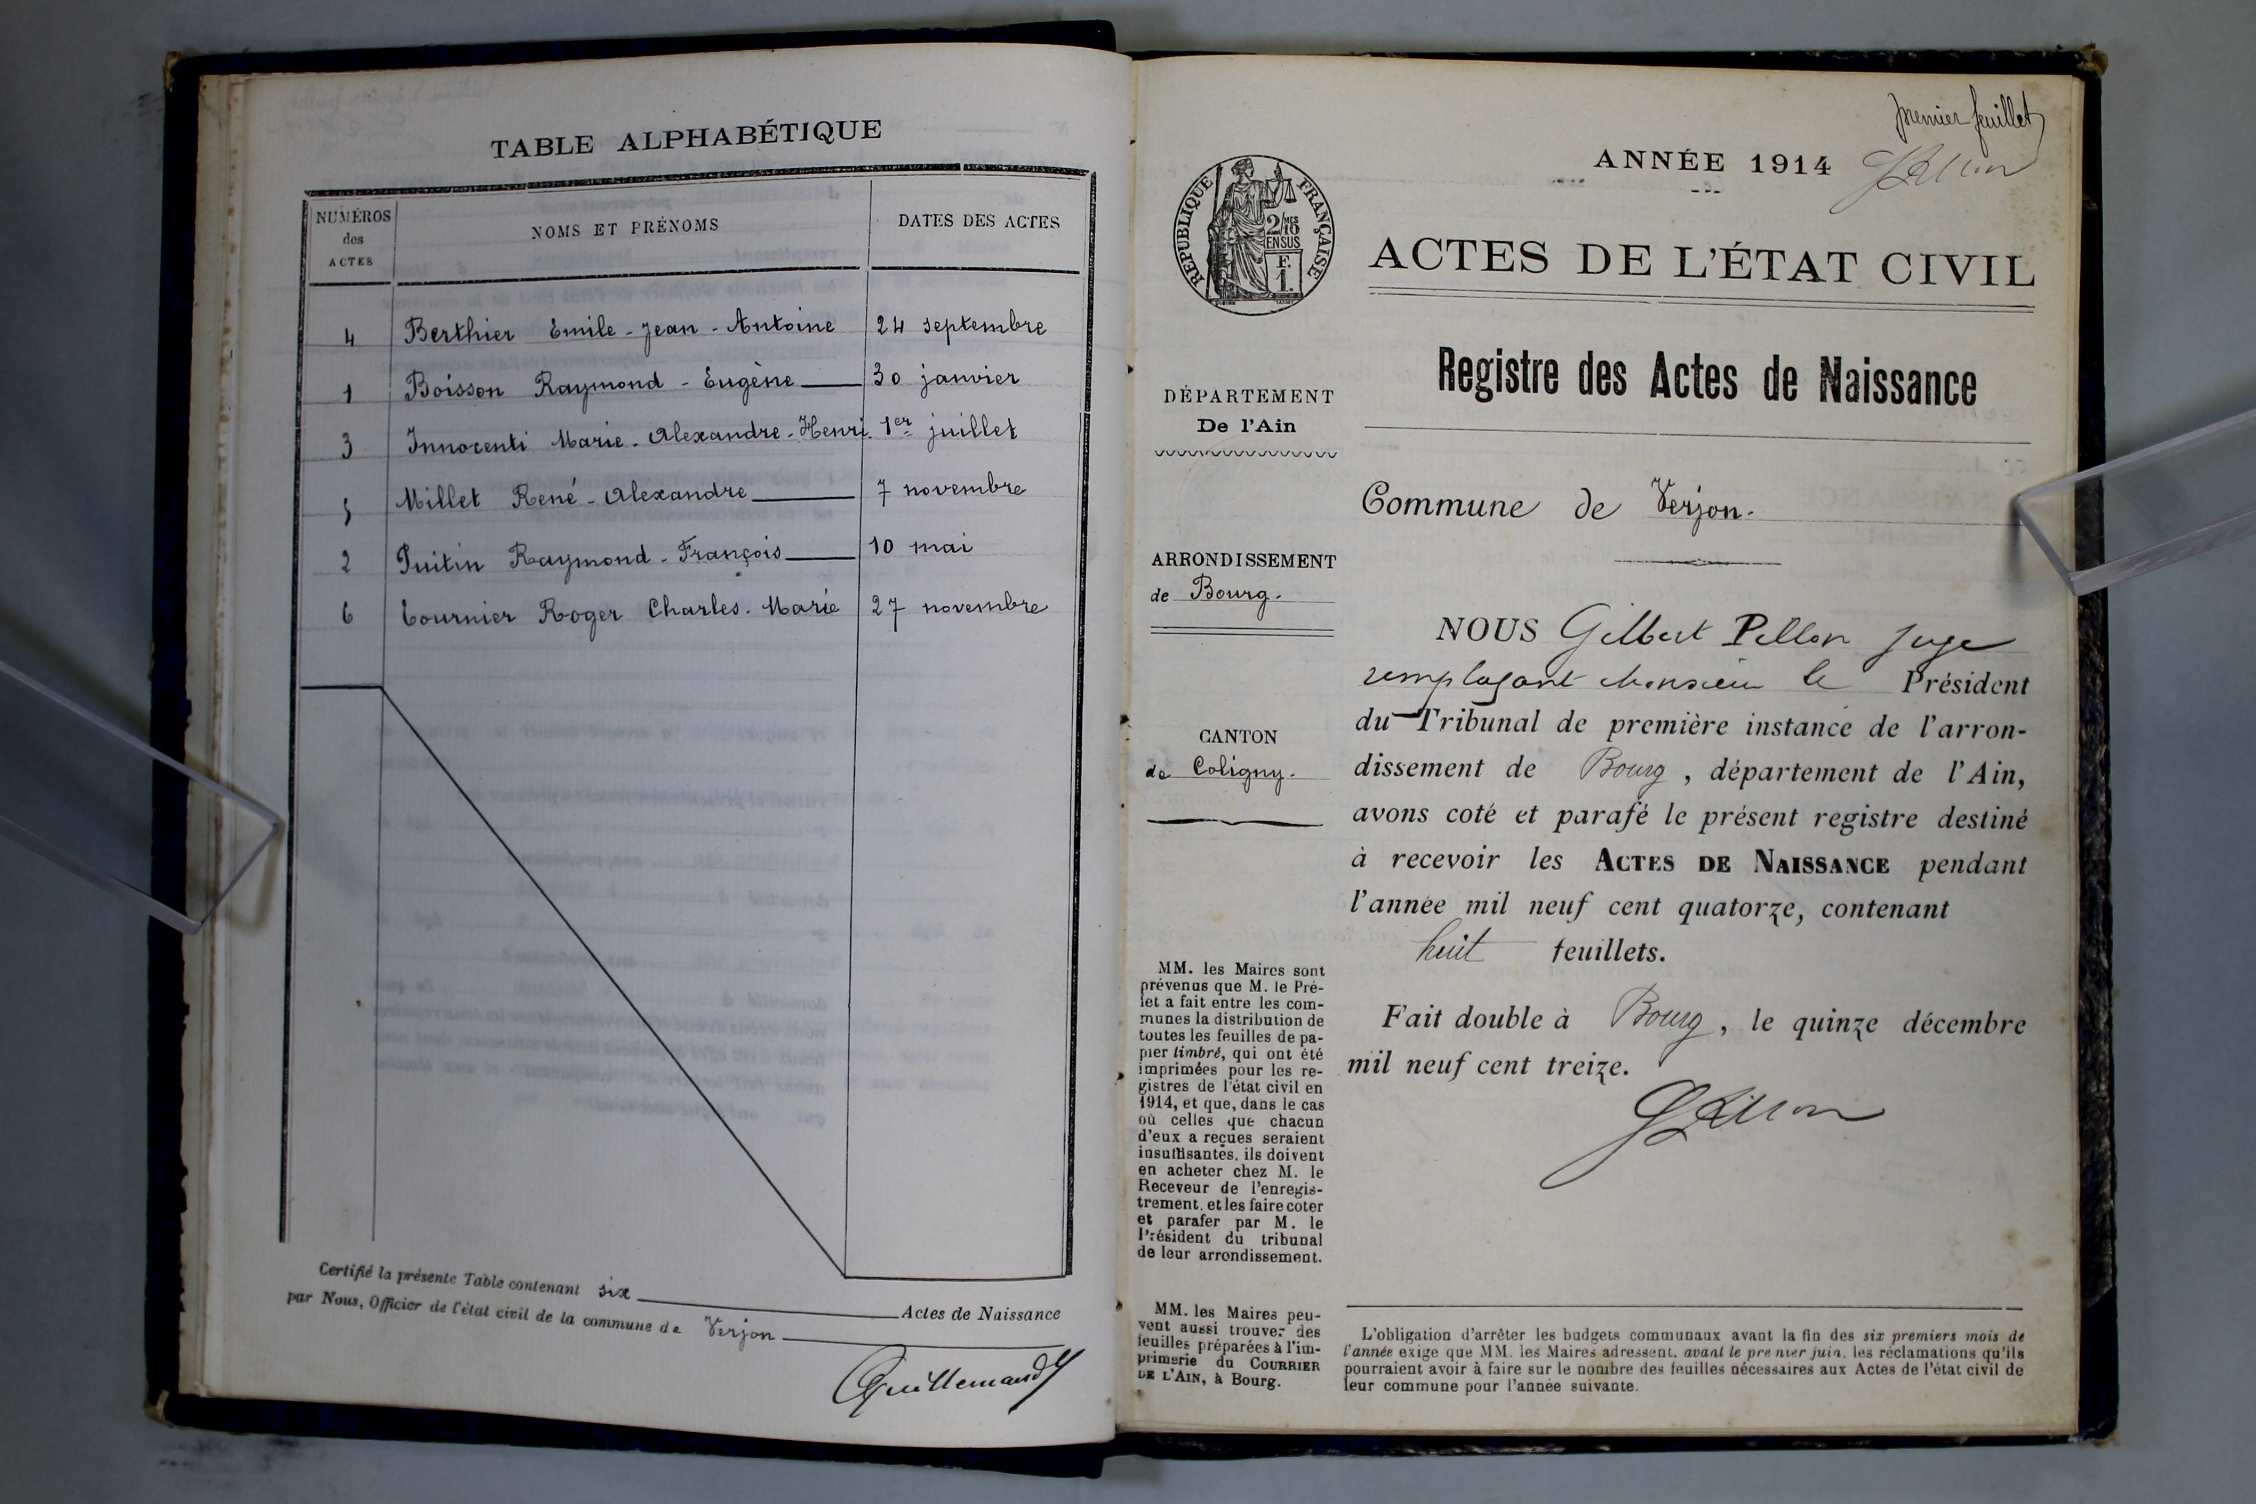 TABLE ALPHABÉTIQUE
NUMÉROS
des
ACTES
NOMS ET PRÉNOMS
DATES DES ACTES
4 Berthier Emile-Jean-Antoine 24 septembre
1 Boisson Raymond-Eugène 30 janvier
3 Innocenti Marie-Alexandre-Henri 1er juillet
5 Millet René-Alexandre 7 novembre
2 Puitin Raymond-François 10 mai
6 Tournier Roger Charles-Marie 27 novembre
Certifié la présente Table contenant six Actes de Naissance
par Nous, Officier de l'état civil de la commune de Verjon
Guillemaud
premier feuillet
ANNÉE 1914
GPellon
RÉPUBLIQUE FRANÇAISE
2/10MES
EN SUS
F.
1.
ACTES DE L'ÉTAT CIVIL
Registre des Actes de Naissance
DÉPARTEMENT
De l'Ain
Commune de Verjon.
ARRONDISSEMENT
de Bourg.
CANTON
de Coligny.
NOUS Gilbert Pellon Juge
remplaçant Monsieur le Président
du Tribunal de première instance de l'arron-
dissement de Bourg, département de l'Ain,
avons coté et parafé le présent registre destiné
à recevoir les ACTES DE NAISSANCE pendant
l'année mil neuf cent quatorze, contenant
huit feuillets.
Fait double à Bourg, le quinze décembre
mil neuf cent treize.
GPellon
MM. les Maires sont
prévenus que M. le Pré-
fet a fait entre les com-
munes la distribution de
toutes les feuilles de pa-
pier timbré, qui ont été
imprimées pour les re-
gistres de l'état civil en
1914, et que, dans le cas
où celles que chacun
d'eux a reçues seraient
insuffisantes, ils doivent
en acheter chez M. le
Receveur de l'enregis-
trement, et les faire coter
et parafer par M. le
Président du tribunal
de leur arrondissement.
MM. les Maires peu-
vent aussi trouver des
feuilles préparées à l'im-
primerie du COURRIER
DE L'AIN, à Bourg.
L'obligation d'arrêter les budgets communaux avant la fin des six premiers mois de
l'année exige que MM. les Maires adressent, avant le premier juin, les réclamations qu'ils
pourraient avoir à faire sur le nombre des feuilles nécessaires aux Actes de l'état civil de
leur commune pour l'année suivante.